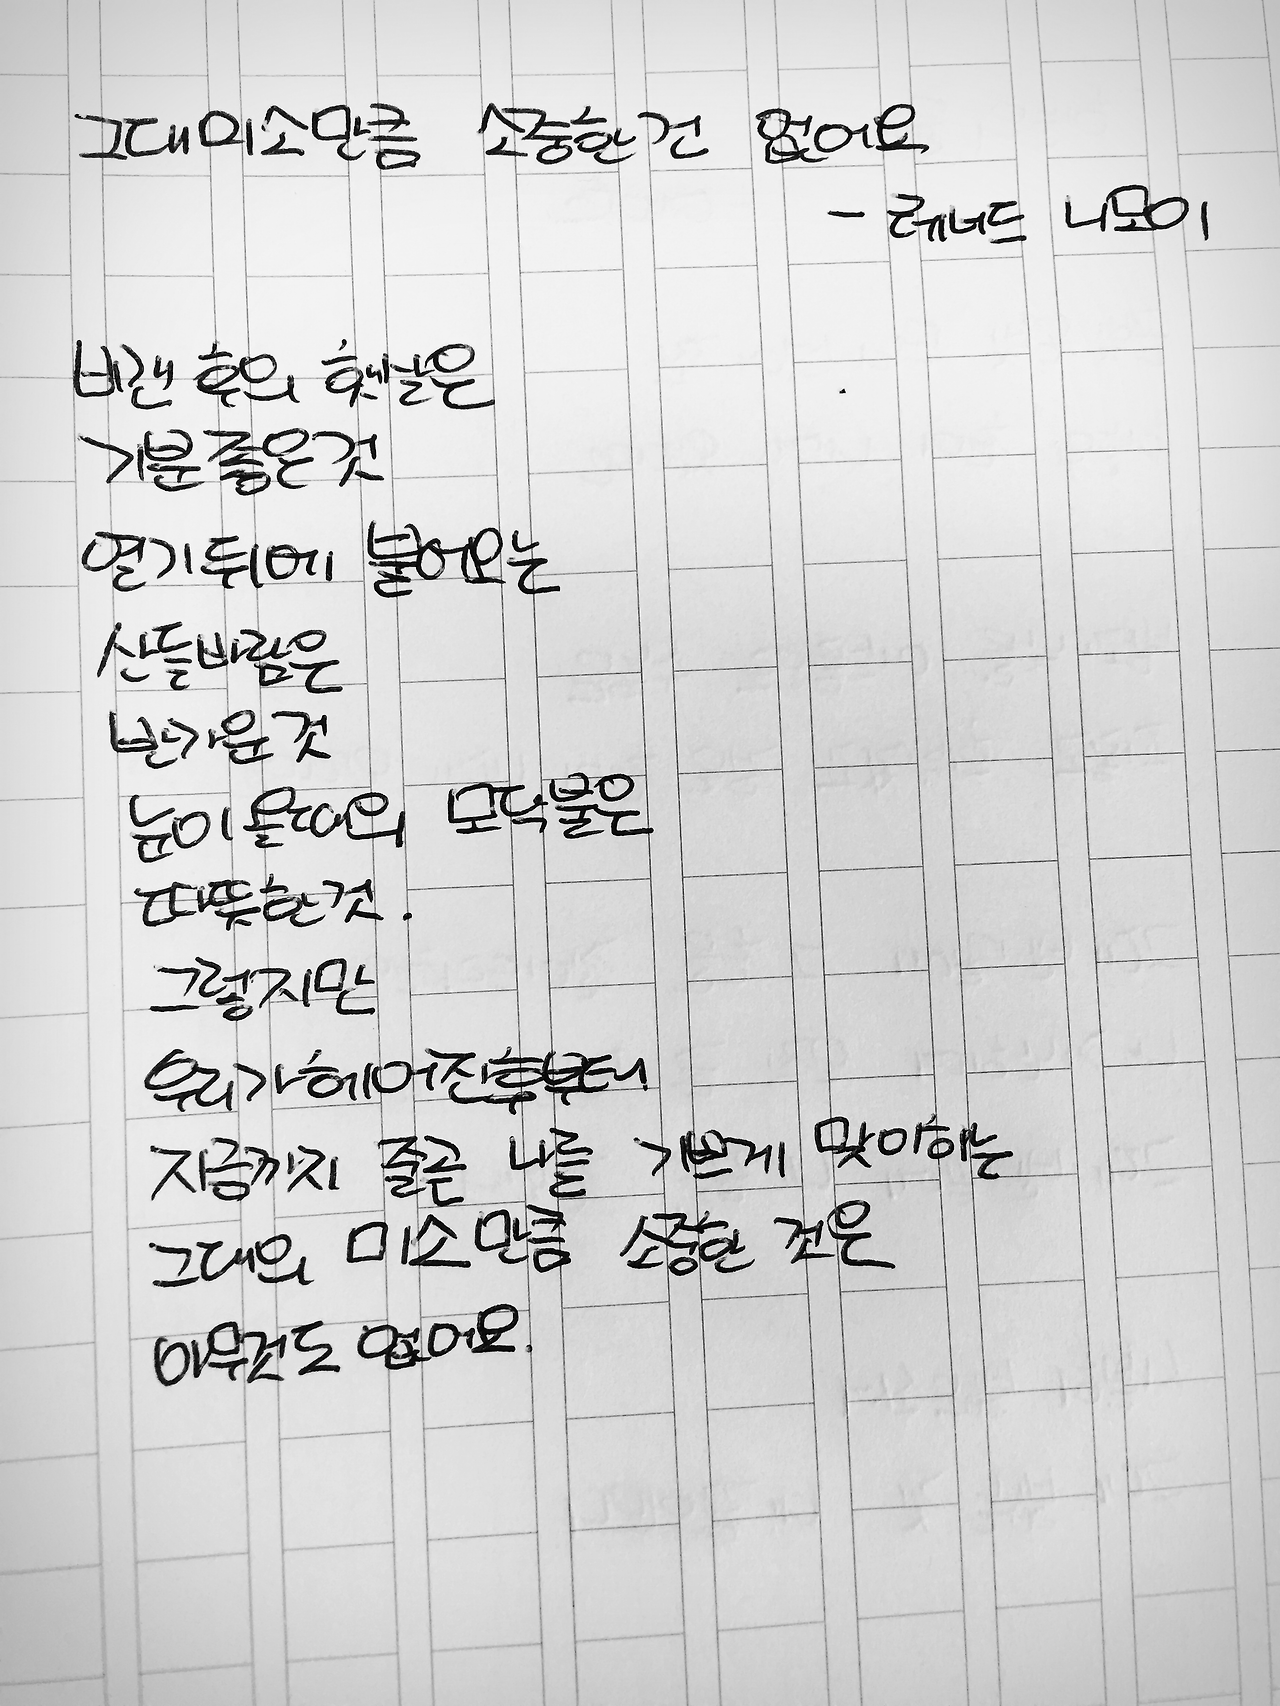 그대미소만큼 소중한건 없어요
- 레너드 니모이
비갠 후의 햇살은
기분좋은것
열기뒤에 불어오는
산들바람은
반가운것
눈이올때의 모닥불은
따뜻한것.
그렇지만
우리가헤어진후부터
지금까지 줄곧 나를 기쁘게 맞이하는
그대의 미소만큼 소중한 것은
아무것도없어요.